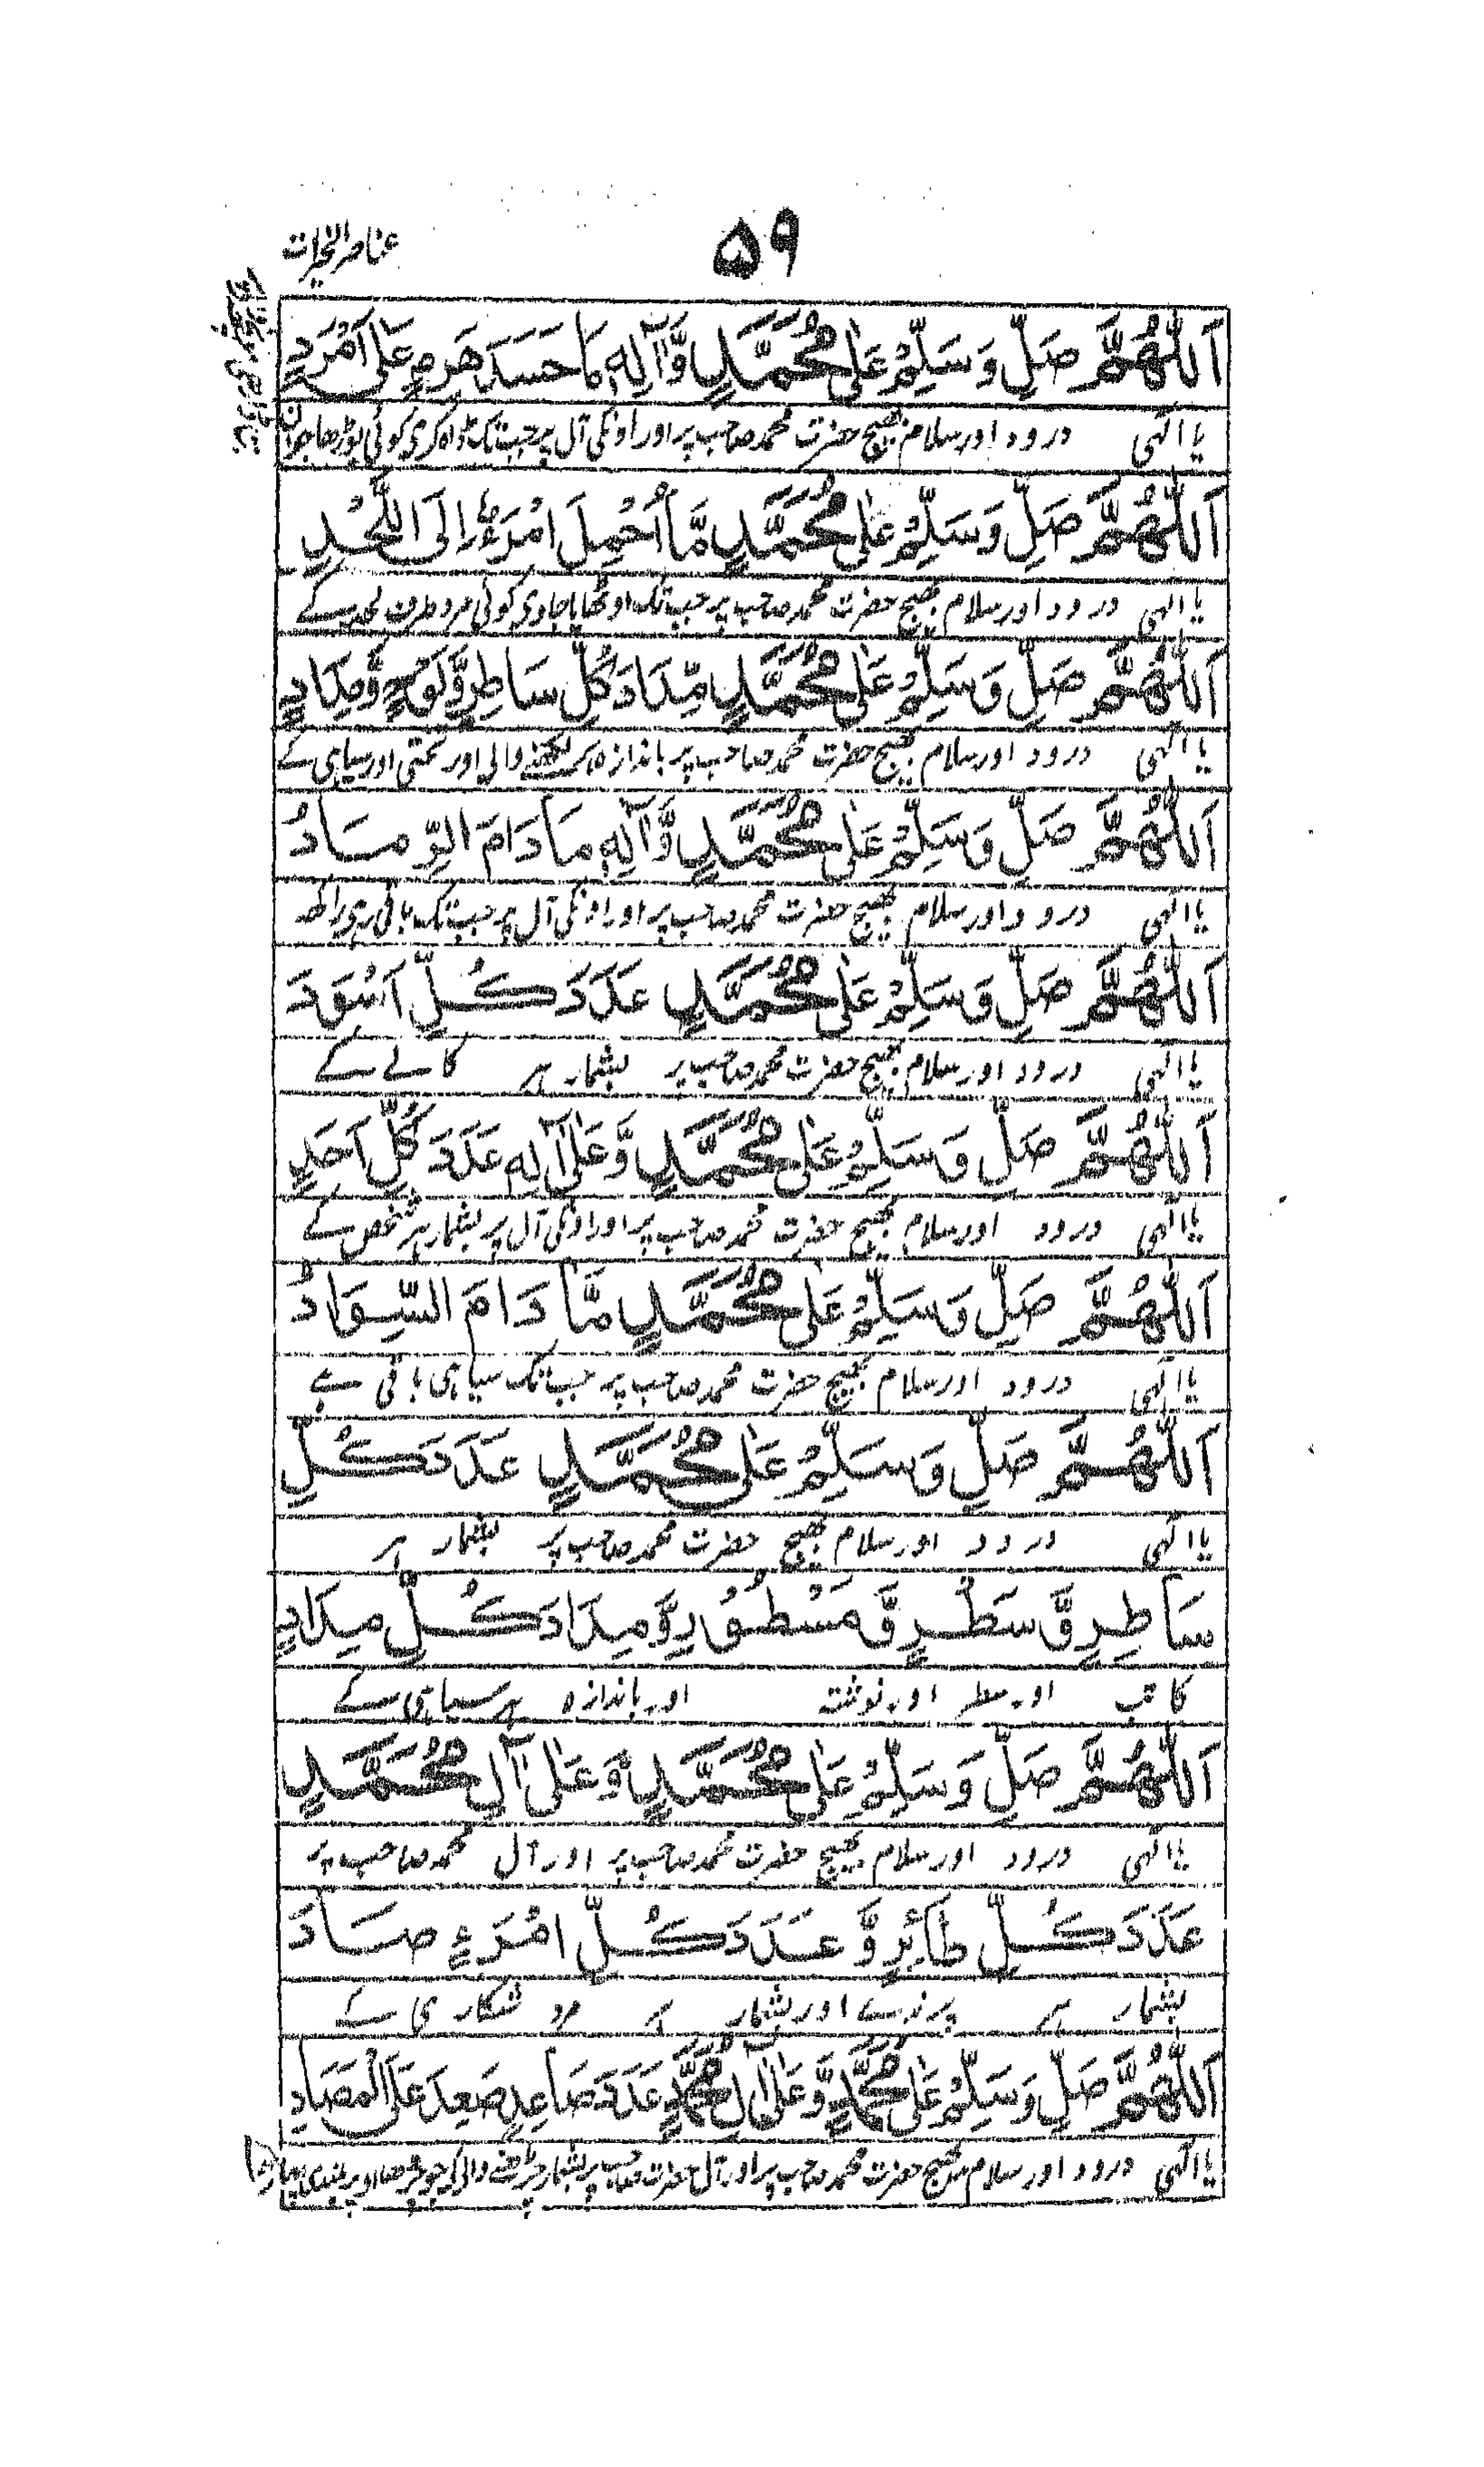 ۵۹
عناصر الخیرات
اَللّٰهُمَّ صَلِّ وَسَلِّمْ عَلٰی مُحَمَّدٍ وَّاٰلِهٖ مَا حَسَدَ هَرِمٍ عَلٰی اَمْرَدٍ
یا الٰہی درود اور سلام بھیج حضرت محمد صاحب پر اور اونکی آل پر جب تک ڈاہ کری کوئی بوڑھا جوان
اَللّٰهُمَّ صَلِّ وَسَلِّمْ عَلٰی مُحَمَّدٍ مَّا اُحْمِلَ امْرَءٌ اِلَی اللَّحْدِ
یا الٰہی درود اور سلام بھیج حضرت محمد صاحب پر جب تک اوٹھایا جاوی کوئی مرد طرف لحد کے
اَللّٰهُمَّ صَلِّ وَسَلِّمْ عَلٰی مُحَمَّدٍ مِّدَادَ كُلِّ سَاطِرٍ وَّلَوْحٍ وَّمِدَادٍ
یا الٰہی درود اور سلام بھیج حضرت محمد صاحب پر باندازہ ہر لکھنے والی اور تختی اور سیاہی کے
اَللّٰهُمَّ صَلِّ وَسَلِّمْ عَلٰی مُحَمَّدٍ وَّاٰلِهٖ مَا دَامَ الوِسَادُ
یا الٰہی درود اور سلام بھیج حضرت محمد صاحب پر اور اونکی آل پر جب تک باقی رہی
اَللّٰهُمَّ صَلِّ وَسَلِّمْ عَلٰی مُحَمَّدٍ عَدَدَ كُلِّ اَسْوَدَ
یا الٰہی درود اور سلام بھیج حضرت محمد صاحب پر بشمار ہر کالے کے
اَللّٰهُمَّ صَلِّ وَسَلِّمْ عَلٰی مُحَمَّدٍ وَّعَلٰی اٰلِهٖ عَدَدَ كُلِّ اَحَدٍ
یا الٰہی درود اور سلام بھیج حضرت محمد صاحب پر اور اونکی آل پر بشمار ہر شخص کے
اَللّٰهُمَّ صَلِّ وَسَلِّمْ عَلٰی مُحَمَّدٍ مَّا دَامَ السِّوَادُ
یا الٰہی درود اور سلام بھیج حضرت محمد صاحب پر جب تک سیاہی باقی ہے
اَللّٰهُمَّ صَلِّ وَسَلِّمْ عَلٰی مُحَمَّدٍ عَدَدَ كُلِّ
یا الٰہی درود اور سلام بھیج حضرت محمد صاحب پر بشمار ہر
سَاطِرٍ وَّ سَطْرٍ وَّ مَسْطُوْرٍ وَّمِدَادَ كُلِّ مِدَادٍ
کاتب اور سطر اور نوشتہ اور باندازہ ہر سیاہی کے
اَللّٰهُمَّ صَلِّ وَسَلِّمْ عَلٰی مُحَمَّدٍ وَّ عَلٰی اٰلِ مُحَمَّدٍ
یا الٰہی درود اور سلام بھیج حضرت محمد صاحب پر اور آل محمد صاحب پر
عَدَدَ كُلِّ طَائِرٍ وَّ عَدَدَ كُلِّ امْرَءٍ صَادَ
بشمار ہر پرندے اور بشمار ہر مرد شکاری کے
اَللّٰهُمَّ صَلِّ وَسَلِّمْ عَلٰی مُحَمَّدٍ وَّعَلٰی اٰلِ مُحَمَّدٍ عَدَدَ صَاعِدٍ صَعِدَ عَلَی الْمَصَادِ
یا الٰہی درود اور سلام بھیج حضرت محمد صاحب پر اور آل حضرت صاحب پر بشمار چڑھنے والی کی جو چڑھا اوپر بلندی پہاڑ